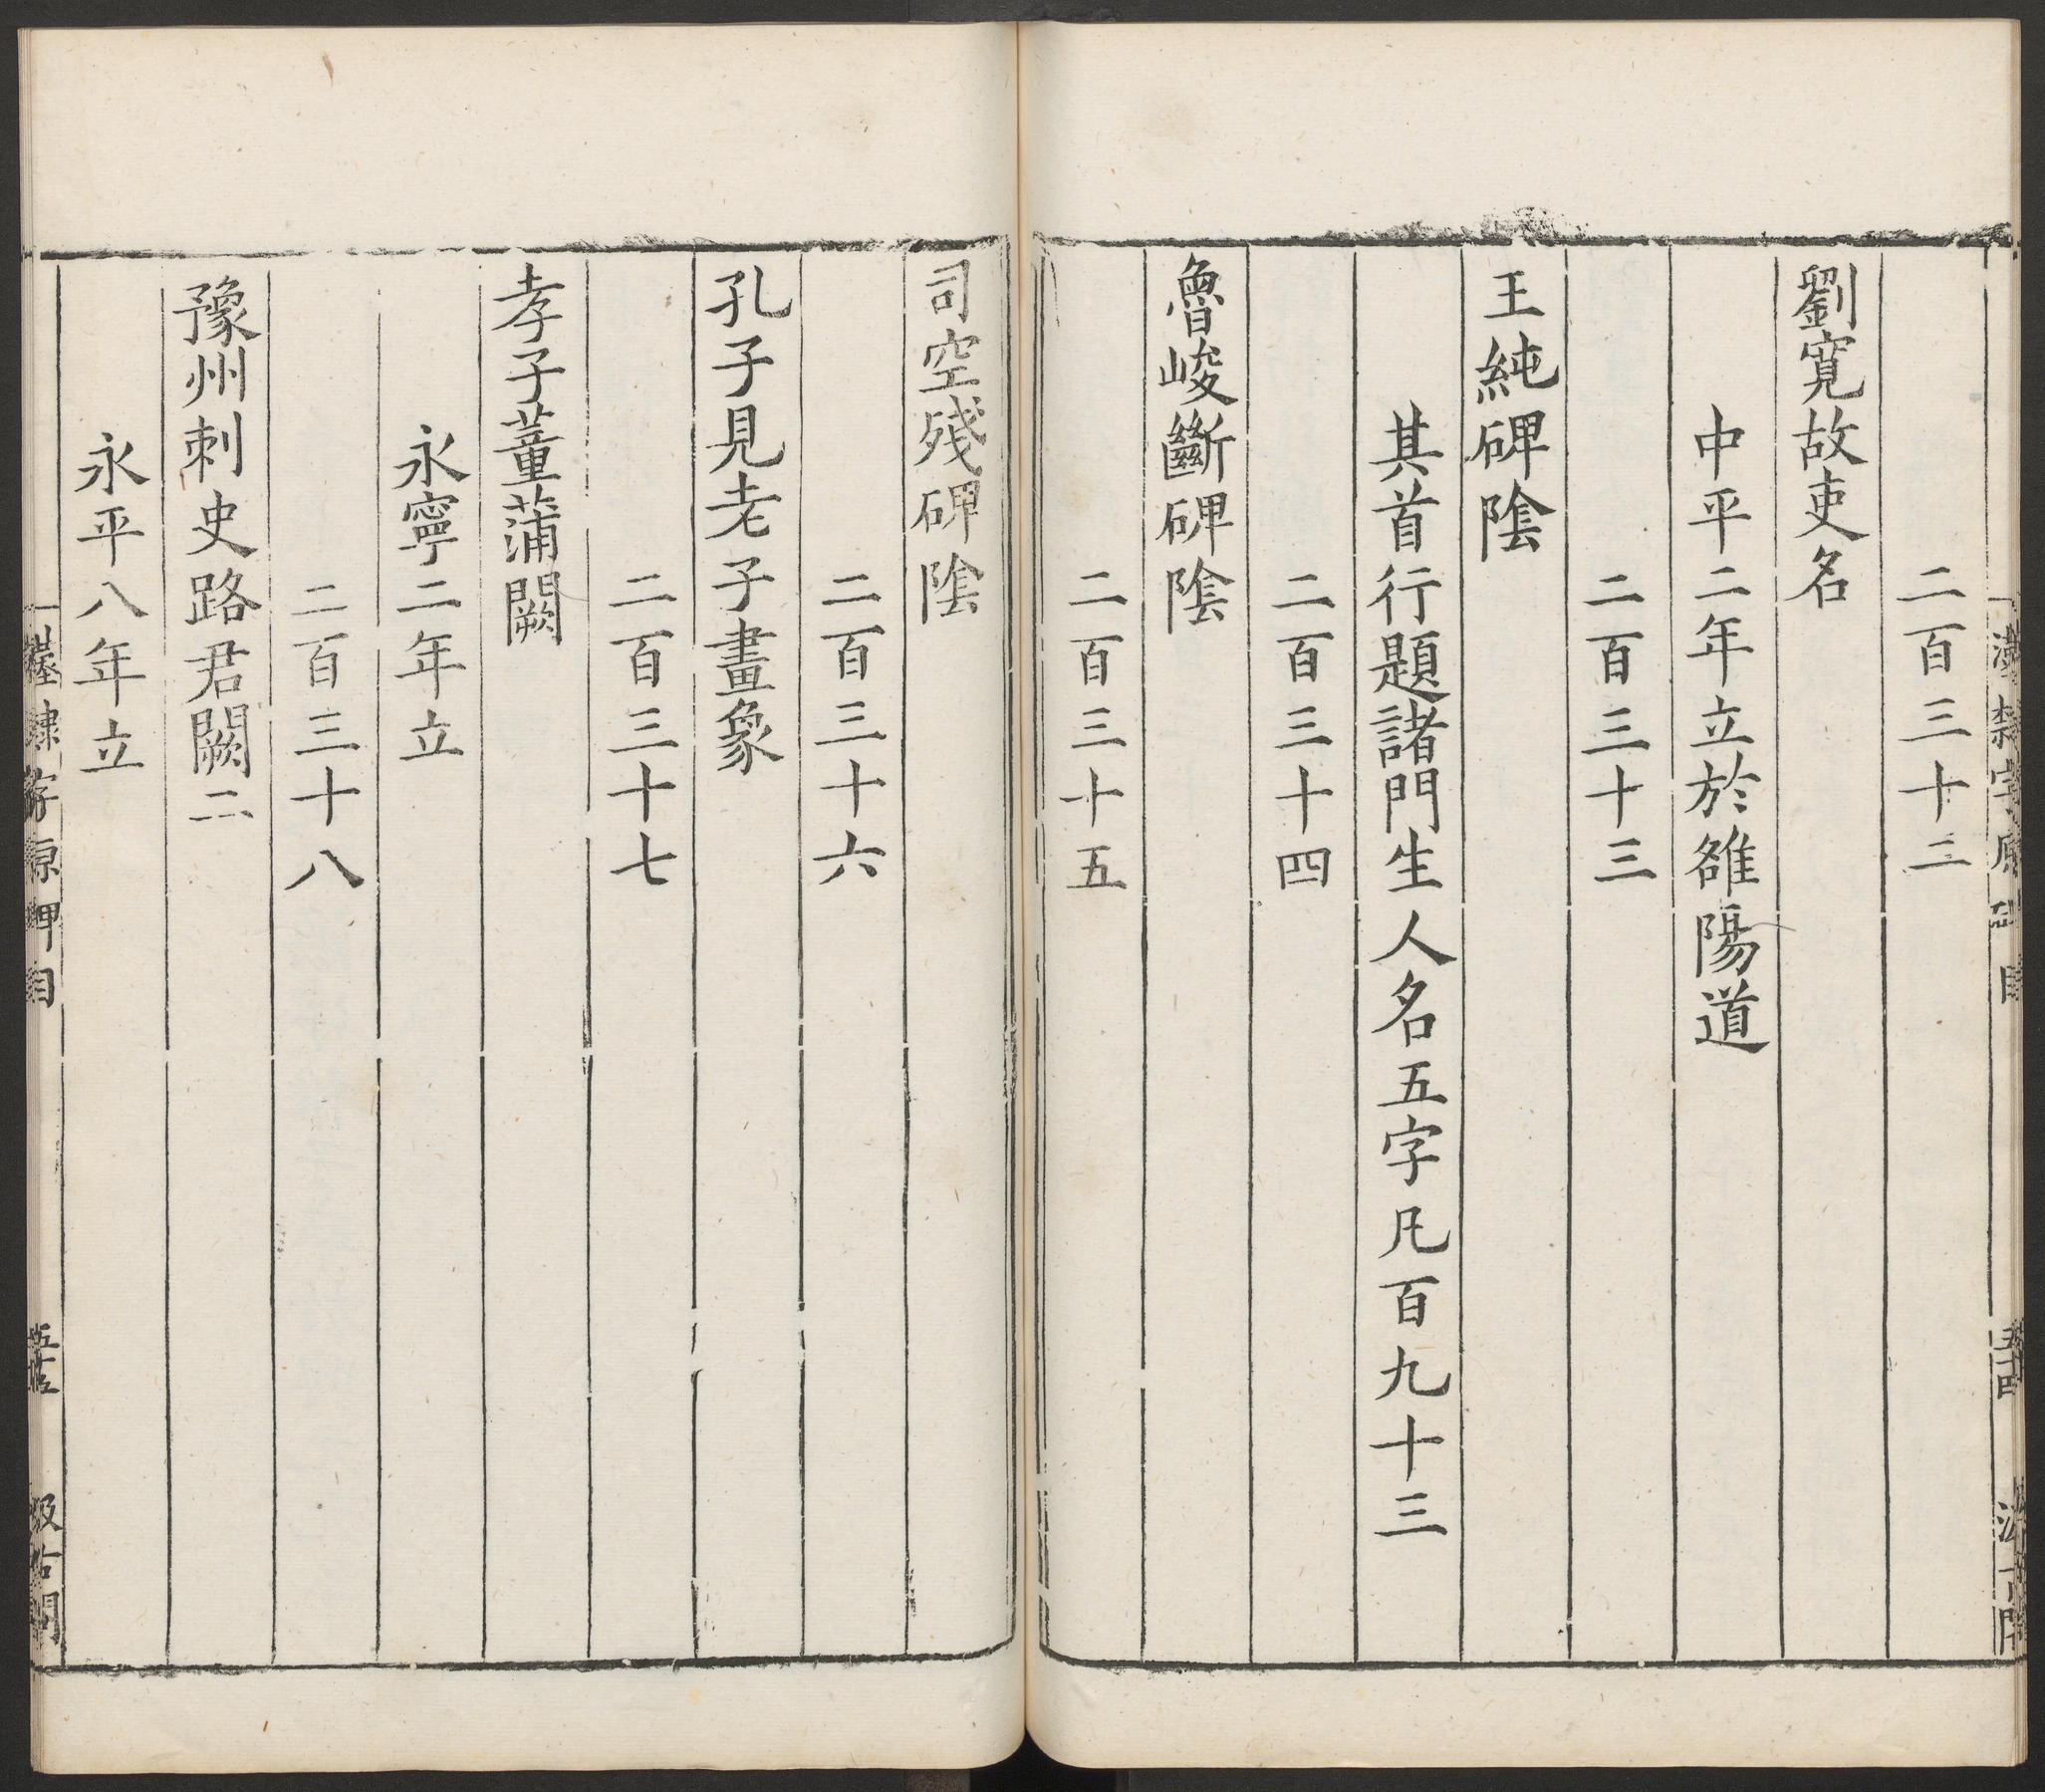 二百三十二
劉寬故吏名
中平二年立於雒陽道
二百三十三
王純碑陰
其首行題諸門生人名五字凡百九十三
二百三十四
魯峻斷碑陰
二百三十五
司空殘碑陰
二百三十六
孔子見老子畫象
二百三十七
孝子董蒲闕
永寧二年立
二百三十八
豫州刺史路君闕二
永平八年立